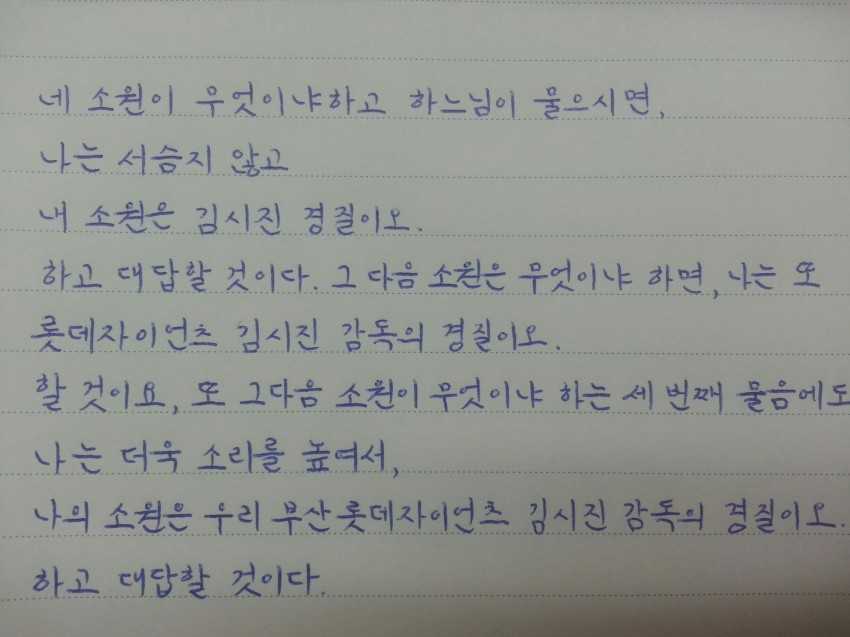 네 소원이 무엇이냐하고 하느님이 물으시면,
나는 서슴지 않고
내 소원은 김시진 경질이오.
하고 대답할 것이다. 그 다음 소원은 무엇이냐 하면, 나는 또
롯데자이언츠 김시진 감독의 경질이오.
할 것이요, 또 그다음 소원이 무엇이냐 하는 세 번째 물음에도
나는 더욱 소리를 높여서,
나의 소원은 우리 부산롯데자이언츠 김시진 감독의 경질이오.
하고 대답할 것이다.